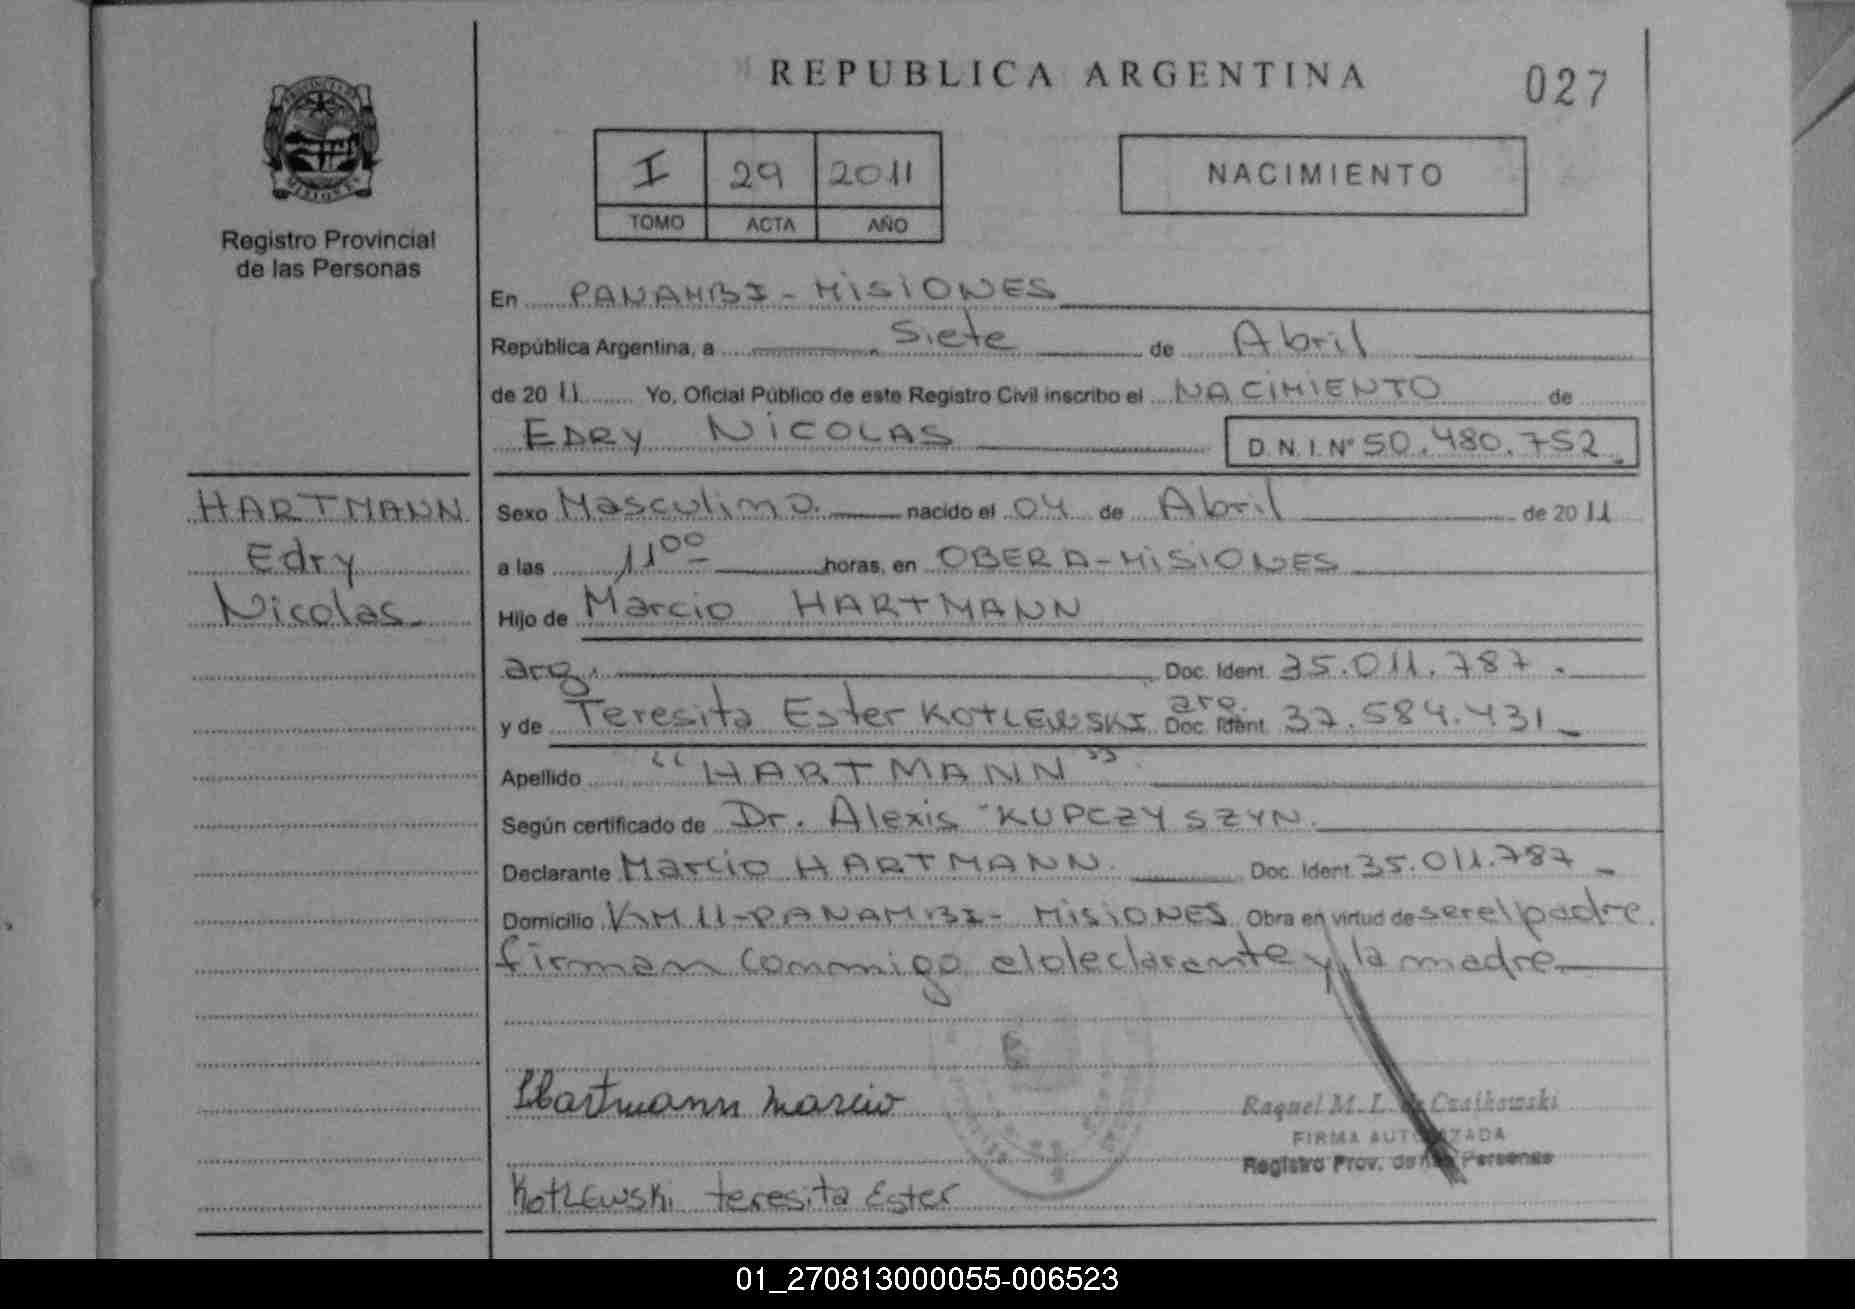 REPUBLICA ARGENTINA
027
I 29 2011
TOMO ACTA AÑO
NACIMIENTO
Registro Provincial
de las Personas
En PANAMBI - MISIONES
República Argentina, a Siete de Abril
de 20 11 Yo, Oficial Público de este Registro Civil inscribo el NACIMIENTO de
EDRY NICOLAS D.N.I. Nº 50.480.752
HARTMANN
Edry
Nicolas
Sexo Masculino. nacido el 04 de Abril de 20 11
a las 11 00 horas, en OBERA - MISIONES
Hijo de Marcio HARTMANN
arg. Doc. Ident. 35.011.787.
y de Teresita Ester KOTLEWSKI arg. Doc. Ident. 37.584.431
Apellido "HARTMANN"
Según certificado de Dr. Alexis KUPCZYSZYN.
Declarante Marcio HARTMANN. Doc. Ident. 35.011.787
Domicilio KM 11 - PANAMBI - MISIONES Obra en virtud de ser el padre.
firman conmigo el declarante y la madre
Hartmann Marcio
Raquel M. L. de Czaikowski
FIRMA AUTORIZADA
Registro Prov. de las Personas
Kotlewski teresita Ester
01_270813000055-006523